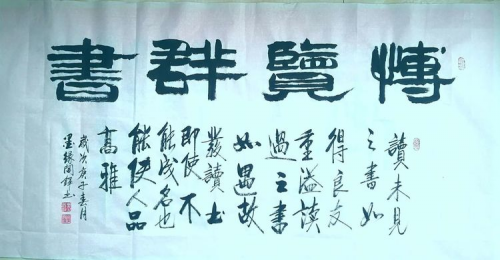 愽覽群書
讀未見
之書如
得良友
重溫讀
過之書
如遇故
讀書
即使不
能成名也
能使人品
高雅
歲次庚子春月
墨緣閣 書